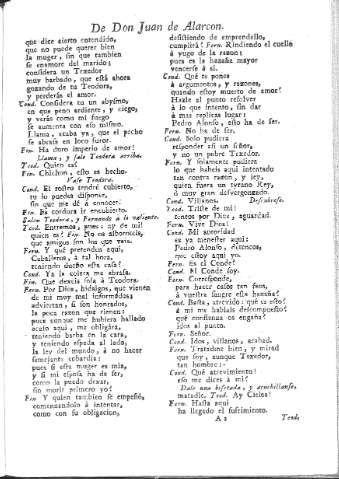 De Don Juan de Alarcon.
que dice cierto entendido,
que no puede querer bien
la muger, sin que tambien
se enamore del marido:
considera un Texedor
muy barbado, que está ahora
gozando de tu Teodora,
y perderás el amor.
Cond. Considera tu un abysmo,
en que peno ardiente, y ciego,
y verás como mi fuego
se aumenta con eso mismo.
Llama, acaba ya, que el pecho
se abrasa en loco furor.
Fin. Ha duro imperio de amor!
Llama, y sale Teodora arriba.
Teod. Quien es?
Fin. Chichon, esto es hecho.
Vase Teodora.
Cond. El rostro tendré cubierto,
tu lo puedes disponer,
sin que me dé á conocer.
Fin. Es cordura ir encubierto.
Salen Teodora, y Fernando á lo valiente.
Teod. Entremos, pues: ay de mi!
quien es? Fin. No os alboroteis,
que amigos son los que veis.
Fern. Y qué pretenden aqui,
Caballeros, á tal hora,
teniendo dueño esta casa?
Cond. Ya la colera me abrasa.
Fin. Que dexeis sola á Teodora.
Fern. Por Dios, hidalgos, que vienen
de mi muy mal informados;
adviertan, si son honrados,
la poca razon que tienen:
pues aunque me hubiera hallado
acaso aqui, me obligára,
teniendo barba en la cara,
y teniendo espada al lado,
la ley del mundo, á no hacer
semejante cobardia:
pues si esta muger es mia,
y si mi esposa ha de ser,
como la puedo dexar,
sin morir primero yo?
Fin. Y quien tambien se empeñó,
comenzandolo á intentar,
como con su obligacion,
desistiendo de emprendello,
cumplirá? Fern. Rindiendo el cuello
á yugo de la razon;
pues es la hazaña mayor
vencerse á sí.
Cond. Qué te pones
á argumentos, y razones,
quando estoy muerto de amor?
Hazle al punto resolver
á lo que intento, sin dar
á mas replicas lugar:
Pedro Alonso, esto ha de ser.
Fern. No ha de ser.
Cond. Solo pudiera
responder así un señor,
y no un pobre Texedor.
Fern. Y solamente pudiera
lo que habeis aqui intentado
tan contra razon, y ley,
quien fuera un tyrano Rey,
ó muy gran desvergonzado.
Cond. Villanos. Descubrese.
Teod. Triste de mi!
teneos por Dios, aguardad.
Fern. Vive Dios!
Cond. Mi autoridad
es ya menester aqui:
Pedro Alonso, deteneos,
que estoy aqui yo.
Fern. Es el Conde?
Cond. El Conde soy.
Fern. Corresponde,
para hacer casos tan feos,
á vuestra sangre esta hazaña?
Cond. Basta, atrevido: qué es esto?
á mi me hablais descompuesto?
qué confianza os engaña?
idos al punto.
Fern. Señor.
Cond. Idos, villanos, acabad.
Fern. Tratadme bien, y mirad
que soy, aunque Texedor,
tan hombre::-
Cond. Qué atrevimiento!
eso me dices á mi?
Dale una bofetada, y acuchillanse.
matadle. Teod. Ay Cielos!
Fern. Hasta aqui
ha llegado el sufrimiento.
A 2 Teod.